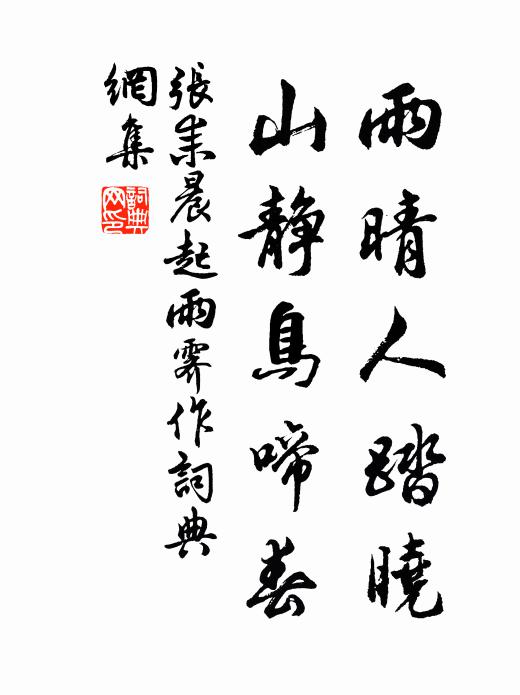 雨晴人踏曉
山靜鳥啼春
張耒晨起雨霽作詞典
網集
詞典网印